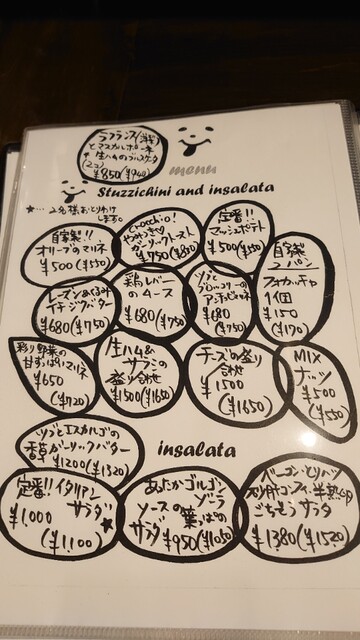 ラフランス(洋梨)
とマスカルポーネ
+生ハムのブルスケッタ
(2コ)
¥850(¥940)
menu
Stuzzichini and insalata
★… 2名様おとりわけ
します。
自家製!!
オリーブのマリネ
¥500(¥550)
chocchio!
ガーリックトースト
¥750(¥830)
定番!!
マッシュポテト
¥500(¥550)
自家製
フォカッチャ
1個
¥150
(¥170)
レーズン&くるみ
イチジクバター
¥680(¥750)
鶏レバー
のムース
¥680(¥750)
ツブと
ブロッコリーの
¥680
(¥750)
彩り野菜の
甘ずっぱいマリネ
¥650
(¥720)
生ハム&
サラミの
盛り合わせ
¥1500(¥1650)
チーズの盛り
合わせ
¥1500
(¥1650)
MIX
ナッツ
¥500
(¥550)
ツブとエスカルゴの
香草ガーリックバター
¥1200(¥1320)
insalata
定番!!イタリアン
サラダ★
¥1,000
(¥1,100)
あったかゴルゴン
ゾーラ
ソースの葉っぱの
サラダ ¥950(¥1050)
ベーコン・とりハツ
砂肝コンフィ・半熟卵
ごちそうサラダ
¥1380(¥1520)